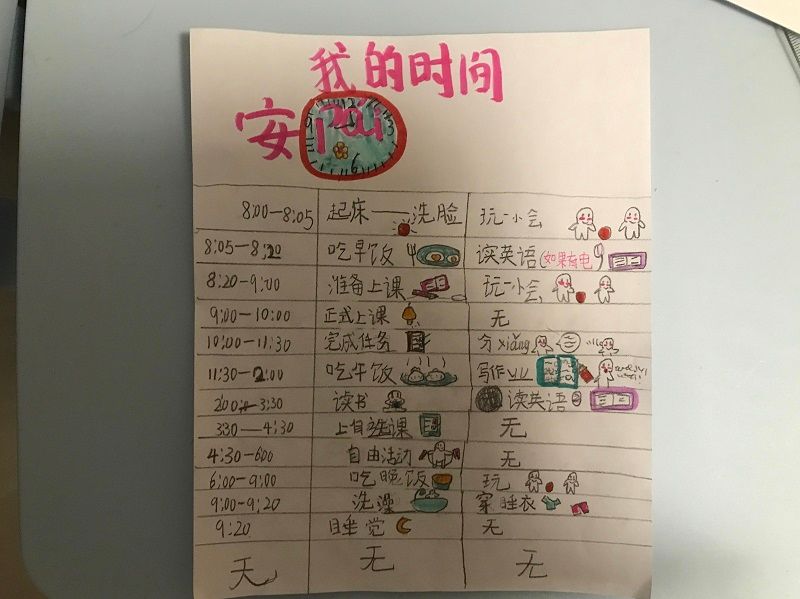 我的时间
安pái
8:00—8:05 起床——洗脸 玩一小会
8:05—8:20 吃早饭 读英语(如果有电
8:20—9:00 准备上课 玩一小会
9:00—10:00 正式上课 无
10:00—11:30 完成任务 分xiǎng
11:30—2:00 吃午饭 写作业
2:00—3:30 读书 读英语
330—4:30 上自主课 无
4:30—600 自由活动 无
6:00—9:00 吃晚饭 玩
9:00—9:20 洗澡 穿睡衣
9:20 睡觉 无
无 无 无